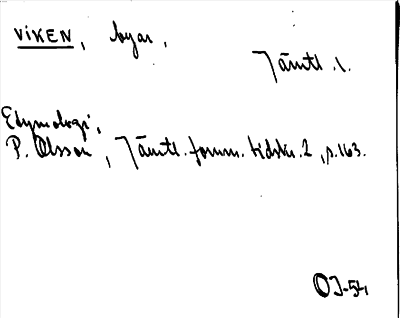 VIKEN, byar,
Jämtl. l.
Etymologi,
P. Olsson, Jämtl. fornm. tidskr. 2, p. 163.
OJ-54